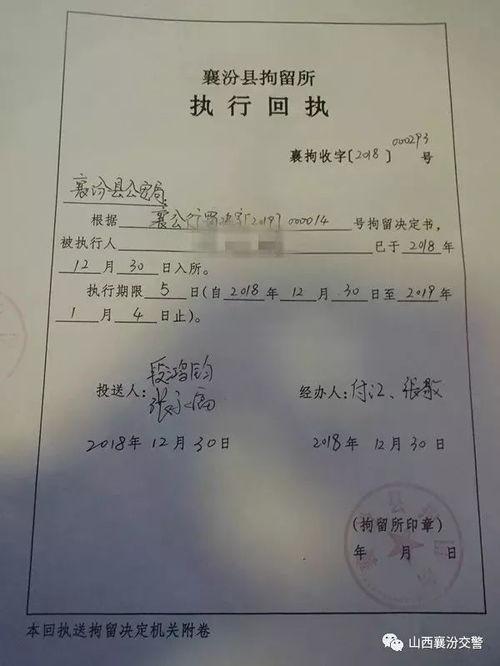 襄汾县拘留所
执行回执
襄拘收字[2018]000293号
襄汾县公安局:
根据 襄公行罚决字[2019]000014 号拘留决定书,
被执行人 已于 2018 年
12 月 30 日入所。
执行期限 5 日(自 2018 年 12 月 30 日至 2019 年
1 月 4 日止)。
投送人: 经办人: 付江、张敬
2018年12月30日 2018年12月30日
(拘留所印章)
年 月 日
本回执送拘留决定机关附卷
山西襄汾交警